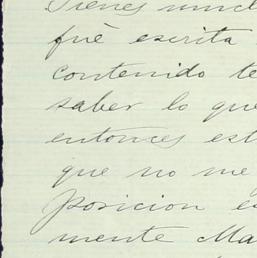 Tienes much
fué escrita
contenido te
saber lo que
entonces est
que no me
posicion e
mente Ma